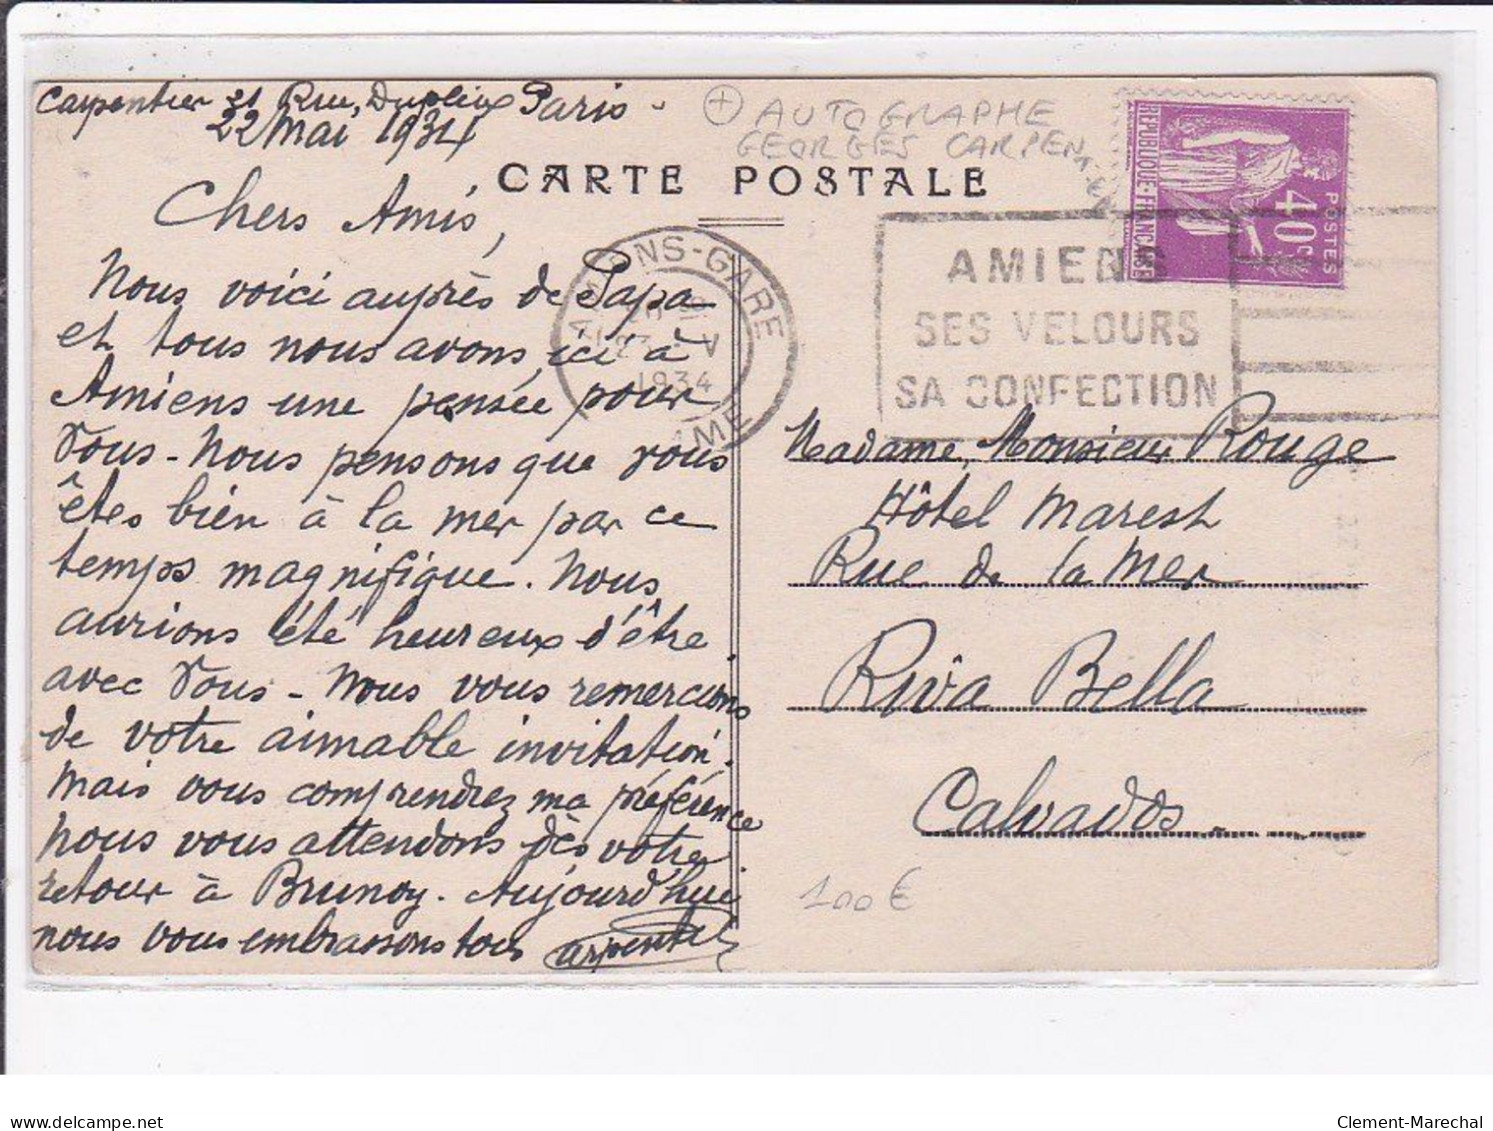 Carpentier 31 Rue, Dupleix Paris -
22 Mai 1934
+ AUTOGRAPHE
GEORGES CARPEN
CARTE POSTALE
RÉPUBLIQUE·FRANÇAISE
POSTES
40c
Chers Amis,
Nous voici auprès de Papa
et tous nous avons, ici à
Amiens une pensée pour
Vous - Nous pensons que vous
êtes bien à la mer par ce
temps magnifique. Nous
aurions été heureux d'être
avec Vous - Nous vous remercions
de votre aimable invitation.
Mais vous comprendrez ma préférence
nous vous attendons dès votre
retour à Brunoy. Aujourd'hui
nous vous embrassons tous Carpentier
AMIENS-GARE
23 - V
1934
AMIENS
SES VELOURS
SA CONFECTION
Madame, Monsieur Rouge
Hôtel Marest
Rue de la Mer
Riva Bella
Calvados.
100€
Clement-Marechal